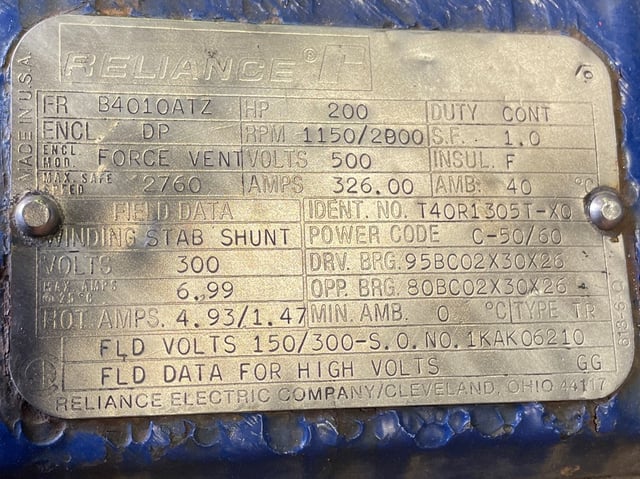 RELIANCE®
MADE IN U.S.A.
FR B4010ATZ HP 200 DUTY CONT
ENCL DP RPM 1150/2000 S.F. 1.0
ENCL MOD. FORCE VENT VOLTS 500 INSUL. F
MAX. SAFE SPEED 2760 AMPS 326.00 AMB. 40 °C
FIELD DATA IDENT. NO. T40R1305T-XO
WINDING STAB SHUNT POWER CODE C-50/60
VOLTS 300 DRV. BRG. 95BC02X30X26
MAX. AMPS @ 25°C 6.99 OPP. BRG. 80BC02X30X26
HOT AMPS. 4.93/1.47 MIN. AMB. 0 °C TYPE TR
FLD VOLTS 150/300-S.O.NO.1KAK06210
FLD DATA FOR HIGH VOLTS GG
RELIANCE ELECTRIC COMPANY/CLEVELAND, OHIO 44117